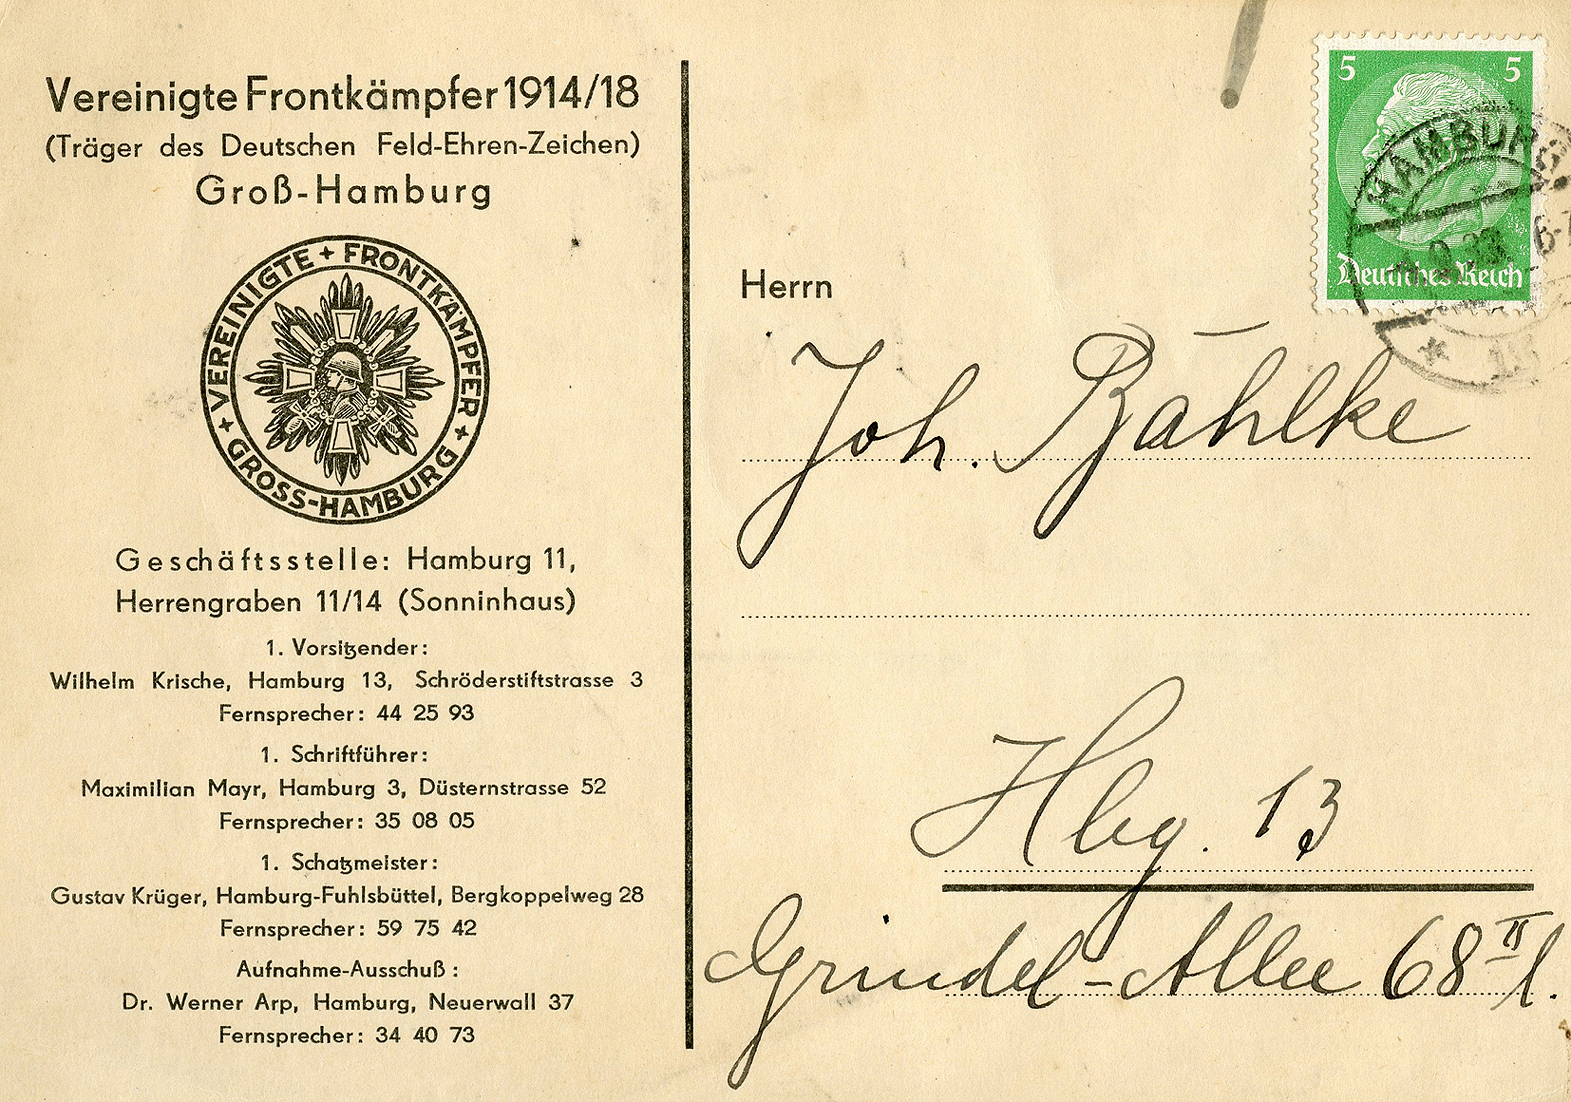 Vereinigte Frontkämpfer 1914/18
(Träger des Deutschen Feld-Ehren-Zeichen)
Groß-Hamburg
+ VEREINIGTE + FRONTKÄMPFER +
GROSS-HAMBURG
Geschäftsstelle: Hamburg 11,
Herrengraben 11/14 (Sonninhaus)
1. Vorsitzender:
Wilhelm Krische, Hamburg 13, Schröderstiftstrasse 3
Fernsprecher: 44 25 93
1. Schriftführer:
Maximilian Mayr, Hamburg 3, Düsternstrasse 52
Fernsprecher: 35 08 05
1. Schatzmeister:
Gustav Krüger, Hamburg-Fuhlsbüttel, Bergkoppelweg 28
Fernsprecher: 59 75 42
Aufnahme-Ausschuß:
Dr. Werner Arp, Hamburg, Neuerwall 37
Fernsprecher: 34 40 73
5 5
Deutsches Reich
HAMBURG
Herrn
Joh. Bählke
Hbg. 13
Grindel-Allee 68 II l.